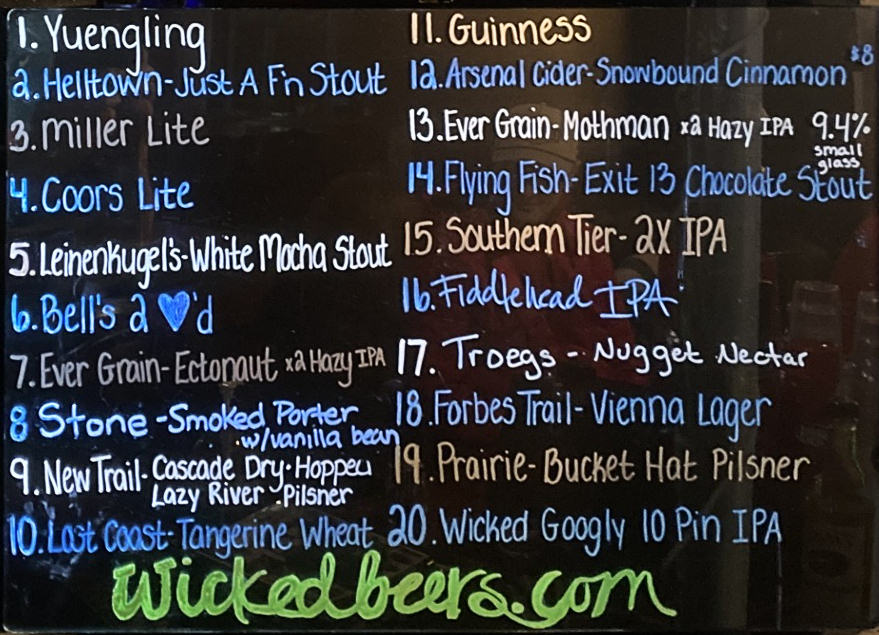 1. Yuengling
2. Helltown-Just A F'n Stout
3. Miller Lite
4. Coors Lite
5. Leinenkugel's-White Mocha Stout
6. Bell's 2 ♥'d
7. Ever Grain-Ectonaut x2 Hazy IPA
8 Stone-Smoked Porter
w/vanilla bean
9. New Trail-Cascade Dry-Hopped
Lazy River-Pilsner
10. Lost Coast-Tangerine Wheat
11. Guinness
12. Arsenal Cider-Snowbound Cinnamon $8
13. Ever Grain-Mothman x2 Hazy IPA 9.4%
small
glass
14. Flying Fish-Exit 13 Chocolate Stout
15. Southern Tier-2X IPA
16. Fiddlehead IPA
17. Troegs - Nugget Nectar
18. Forbes Trail-Vienna Lager
19. Prairie-Bucket Hat Pilsner
20. Wicked Googly 10 Pin IPA
Wickedbeers.com